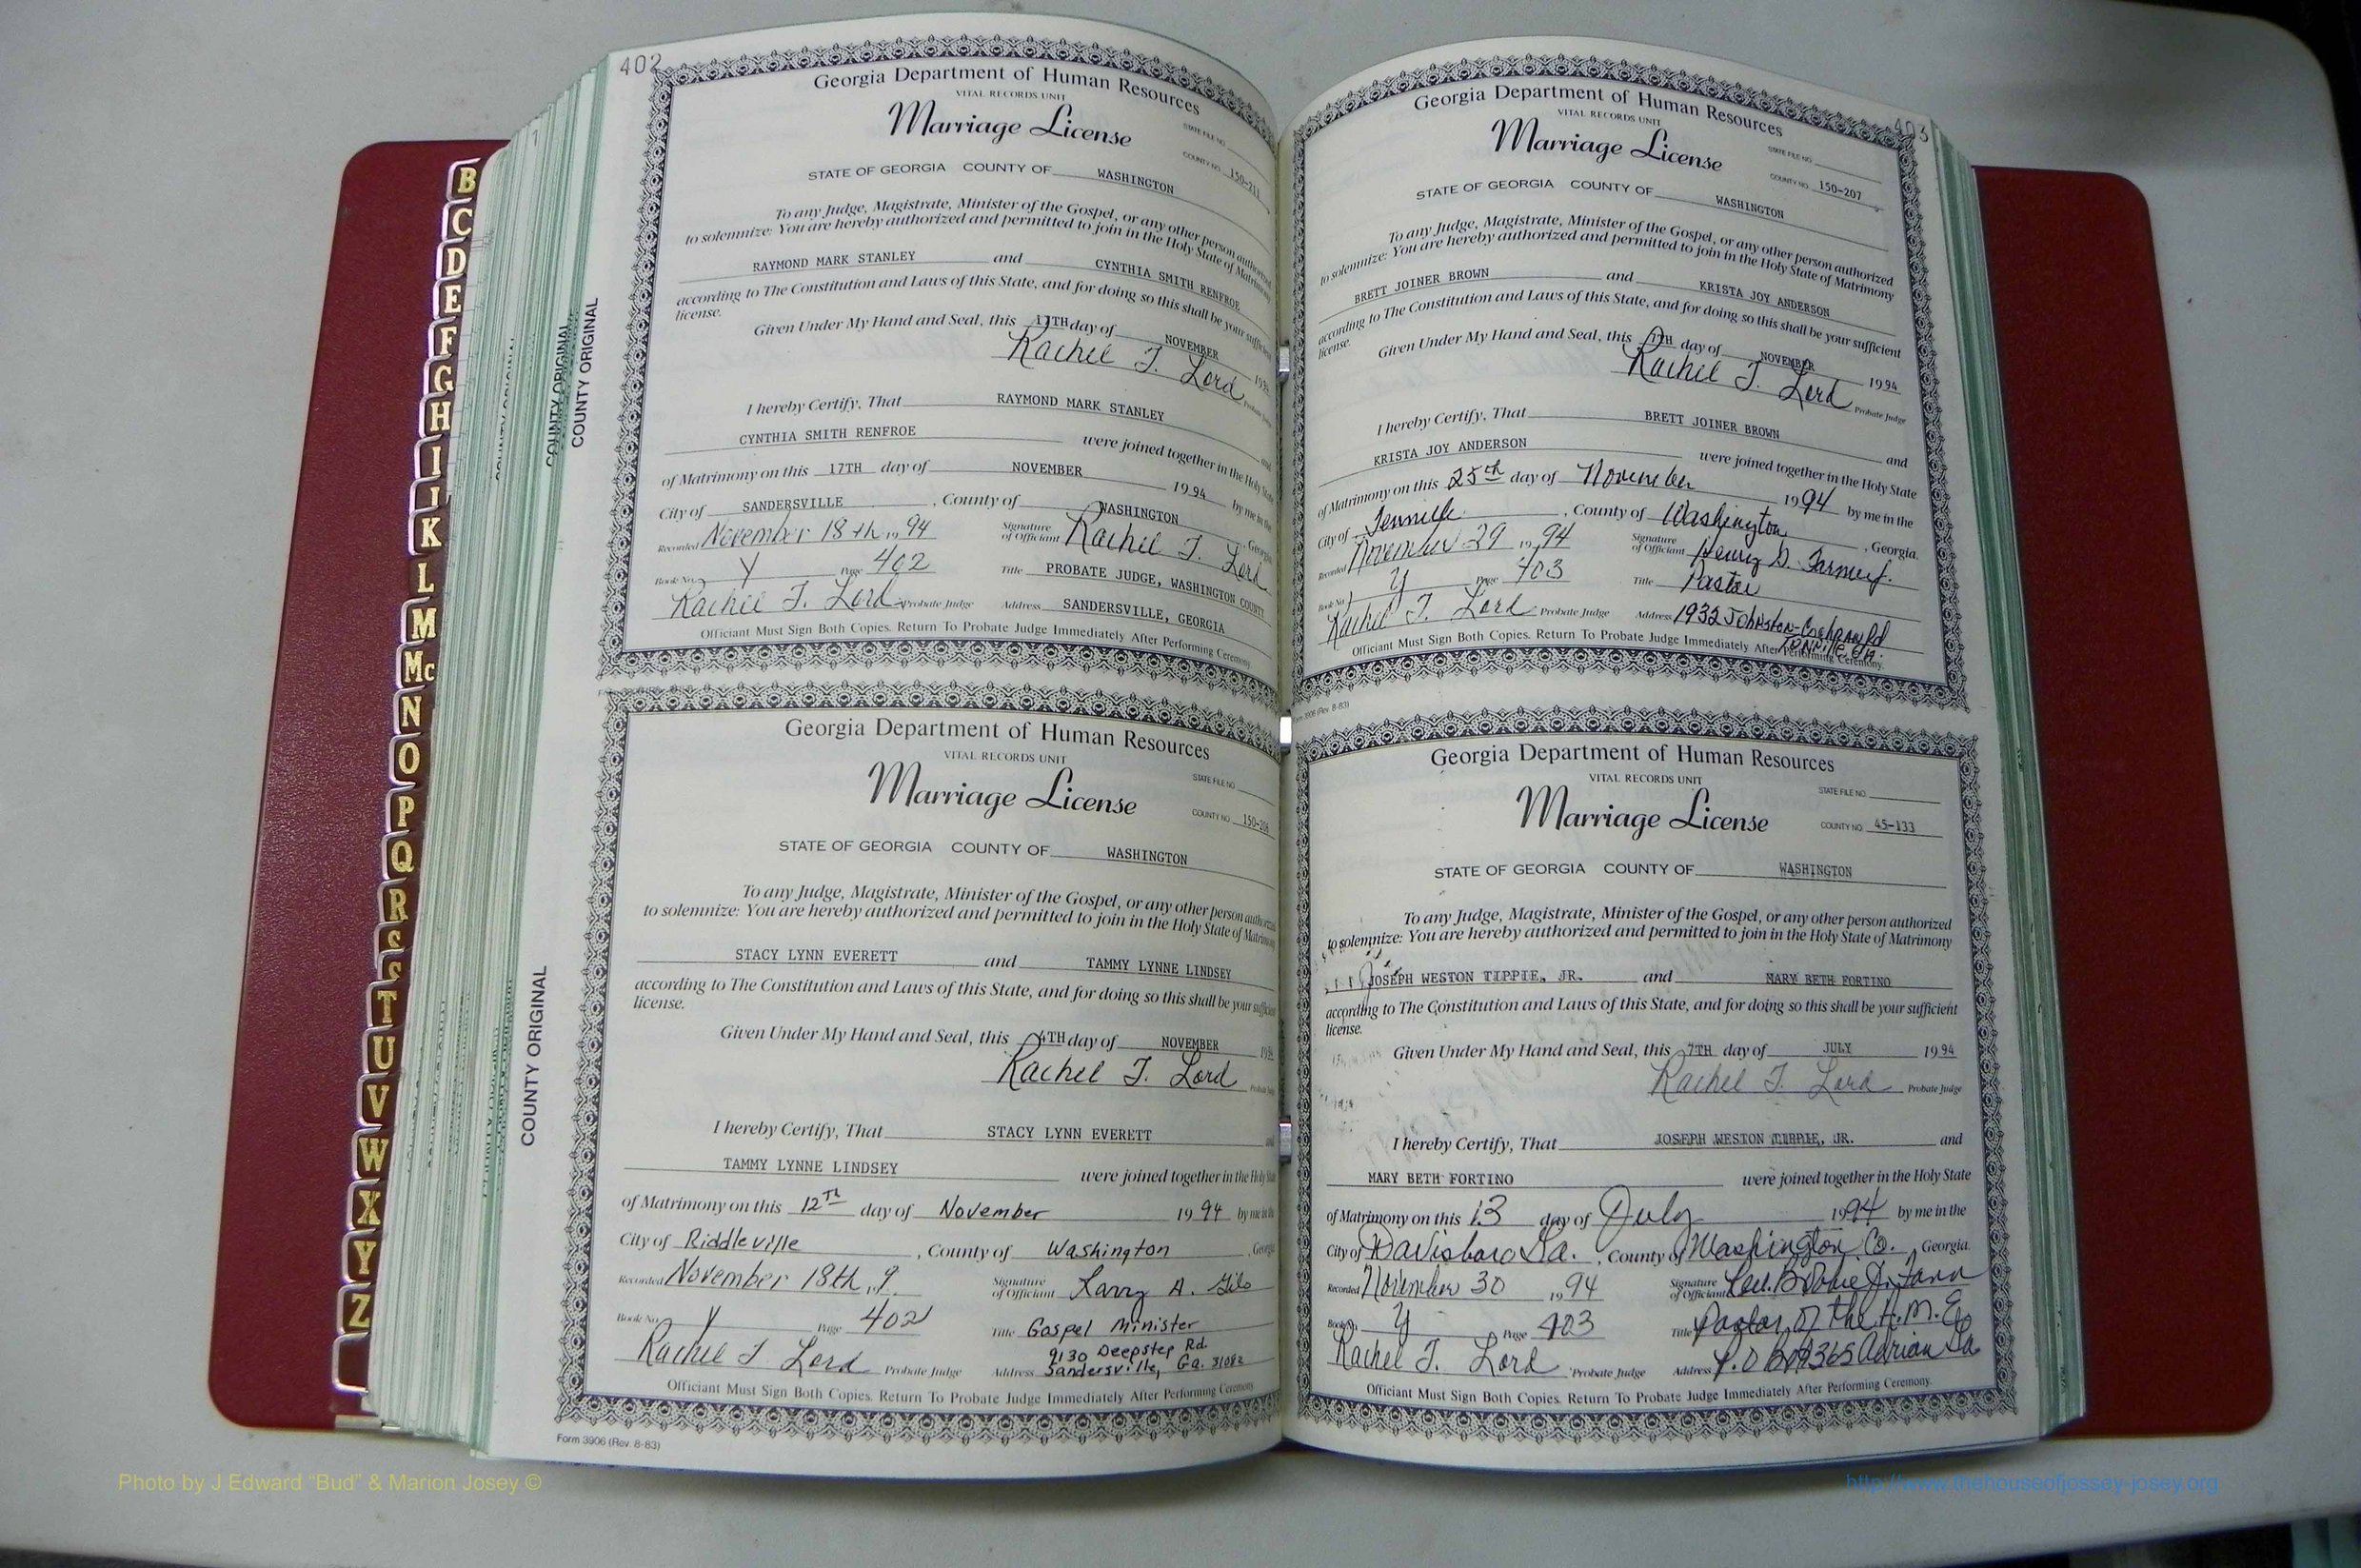 402
Georgia Department of Human Resources
VITAL RECORDS UNIT
Marriage License
STATE FILE NO.
COUNTY NO. 150-211
STATE OF GEORGIA COUNTY OF WASHINGTON
To any Judge, Magistrate, Minister of the Gospel, or any other person authorized
to solemnize: You are hereby authorized and permitted to join in the Holy State of Matrimony
RAYMOND MARK STANLEY and CYNTHIA SMITH RENFROE
according to The Constitution and Laws of this State, and for doing so this shall be your sufficient
license.
Given Under My Hand and Seal, this 17TH day of NOVEMBER 1994
Rachel T. Lord Probate Judge
I hereby Certify, That RAYMOND MARK STANLEY and
CYNTHIA SMITH RENFROE were joined together in the Holy State
of Matrimony on this 17TH day of NOVEMBER 1994 by me in the
City of SANDERSVILLE, County of WASHINGTON, Georgia
Recorded November 18th 1994 Signature of Officiant Rachel T. Lord
Book No. Y Page 402 Title PROBATE JUDGE, WASHINGTON COUNTY
Rachel T. Lord Probate Judge Address SANDERSVILLE, GEORGIA
Officiant Must Sign Both Copies. Return To Probate Judge Immediately After Performing Ceremony.
COUNTY ORIGINAL
COUNTY ORIGINAL
Georgia Department of Human Resources
VITAL RECORDS UNIT
Marriage License
STATE FILE NO.
COUNTY NO.
STATE OF GEORGIA COUNTY OF WASHINGTON
To any Judge, Magistrate, Minister of the Gospel, or any other person authorized
to solemnize: You are hereby authorized and permitted to join in the Holy State of Matrimony
STACY LYNN EVERETT and TAMMY LYNNE LINDSEY
according to The Constitution and Laws of this State, and for doing so this shall be your sufficient
license.
Given Under My Hand and Seal, this 4TH day of NOVEMBER
Rachel T. Lord Probate Judge
I hereby Certify, That STACY LYNN EVERETT and
TAMMY LYNNE LINDSEY were joined together in the Holy State
of Matrimony on this 12th day of November 1994 by me in the
City of Riddleville, County of Washington, Georgia
Recorded November 18th, 19 9. Signature of Officiant Larry A.
Book No. Y Page 402 Title Gospel Minister
9130 Deepstep Rd.
Rachel T Lord Probate Judge Address Sandersville, Ga. 31082
Officiant Must Sign Both Copies. Return To Probate Judge Immediately After Performing Ceremony.
Form 3906 (Rev. 8-83)
COUNTY ORIGINAL
403
Georgia Department of Human Resources
VITAL RECORDS UNIT
Marriage License
STATE FILE NO.
COUNTY NO. 150-207
STATE OF GEORGIA COUNTY OF WASHINGTON
To any Judge, Magistrate, Minister of the Gospel, or any other person authorized
to solemnize: You are hereby authorized and permitted to join in the Holy State of Matrimony
BRETT JOINER BROWN and KRISTA JOY ANDERSON
according to The Constitution and Laws of this State, and for doing so this shall be your sufficient
license.
Given Under My Hand and Seal, this 7TH day of NOVEMBER 1994
Rachel T. Lord Probate Judge
I hereby Certify, That BRETT JOINER BROWN and
KRISTA JOY ANDERSON were joined together in the Holy State
of Matrimony on this 25th day of November 1994 by me in the
City of Tennille, County of Washington, Georgia.
Recorded November 29 1994 Signature of Officiant Henry G.
Book No. Y Page 403 Title Pastor
Rachel T. Lord Probate Judge Address 1932 Rd
Tennille Ga.
Officiant Must Sign Both Copies. Return To Probate Judge Immediately After Performing Ceremony.
Form 3906 (Rev. 8-83)
Georgia Department of Human Resources
VITAL RECORDS UNIT
Marriage License
STATE FILE NO.
COUNTY NO. 45-133
STATE OF GEORGIA COUNTY OF WASHINGTON
To any Judge, Magistrate, Minister of the Gospel, or any other person authorized
to solemnize: You are hereby authorized and permitted to join in the Holy State of Matrimony
JOSEPH WESTON TIPPIE, JR. and MARY BETH FORTINO
according to The Constitution and Laws of this State, and for doing so this shall be your sufficient
license.
Given Under My Hand and Seal, this 7TH day of JULY 1994
Rachel T. Lord Probate Judge
I hereby Certify, That JOSEPH WESTON TIPPIE, JR. and
MARY BETH FORTINO were joined together in the Holy State
of Matrimony on this 13 day of July 1994 by me in the
City of Davisboro Ga., County of Washington Co., Georgia
Recorded November 30 1994 Signature of Officiant Rev. Bobbie J.
Book No. Y Page 403 Title Pastor of the
Rachel T. Lord Probate Judge Address P.O Box 365 Adrian Ga
Officiant Must Sign Both Copies. Return To Probate Judge Immediately After Performing Ceremony.
B
C
D
E
F
G
H
I
J
K
L
M
Mc
N
O
P
Q
R
S
S
T
U
V
W
X
Y
Z
Photo by J Edward “Bud” & Marion Josey ©
http://www.thehouseofjossey-josey.org